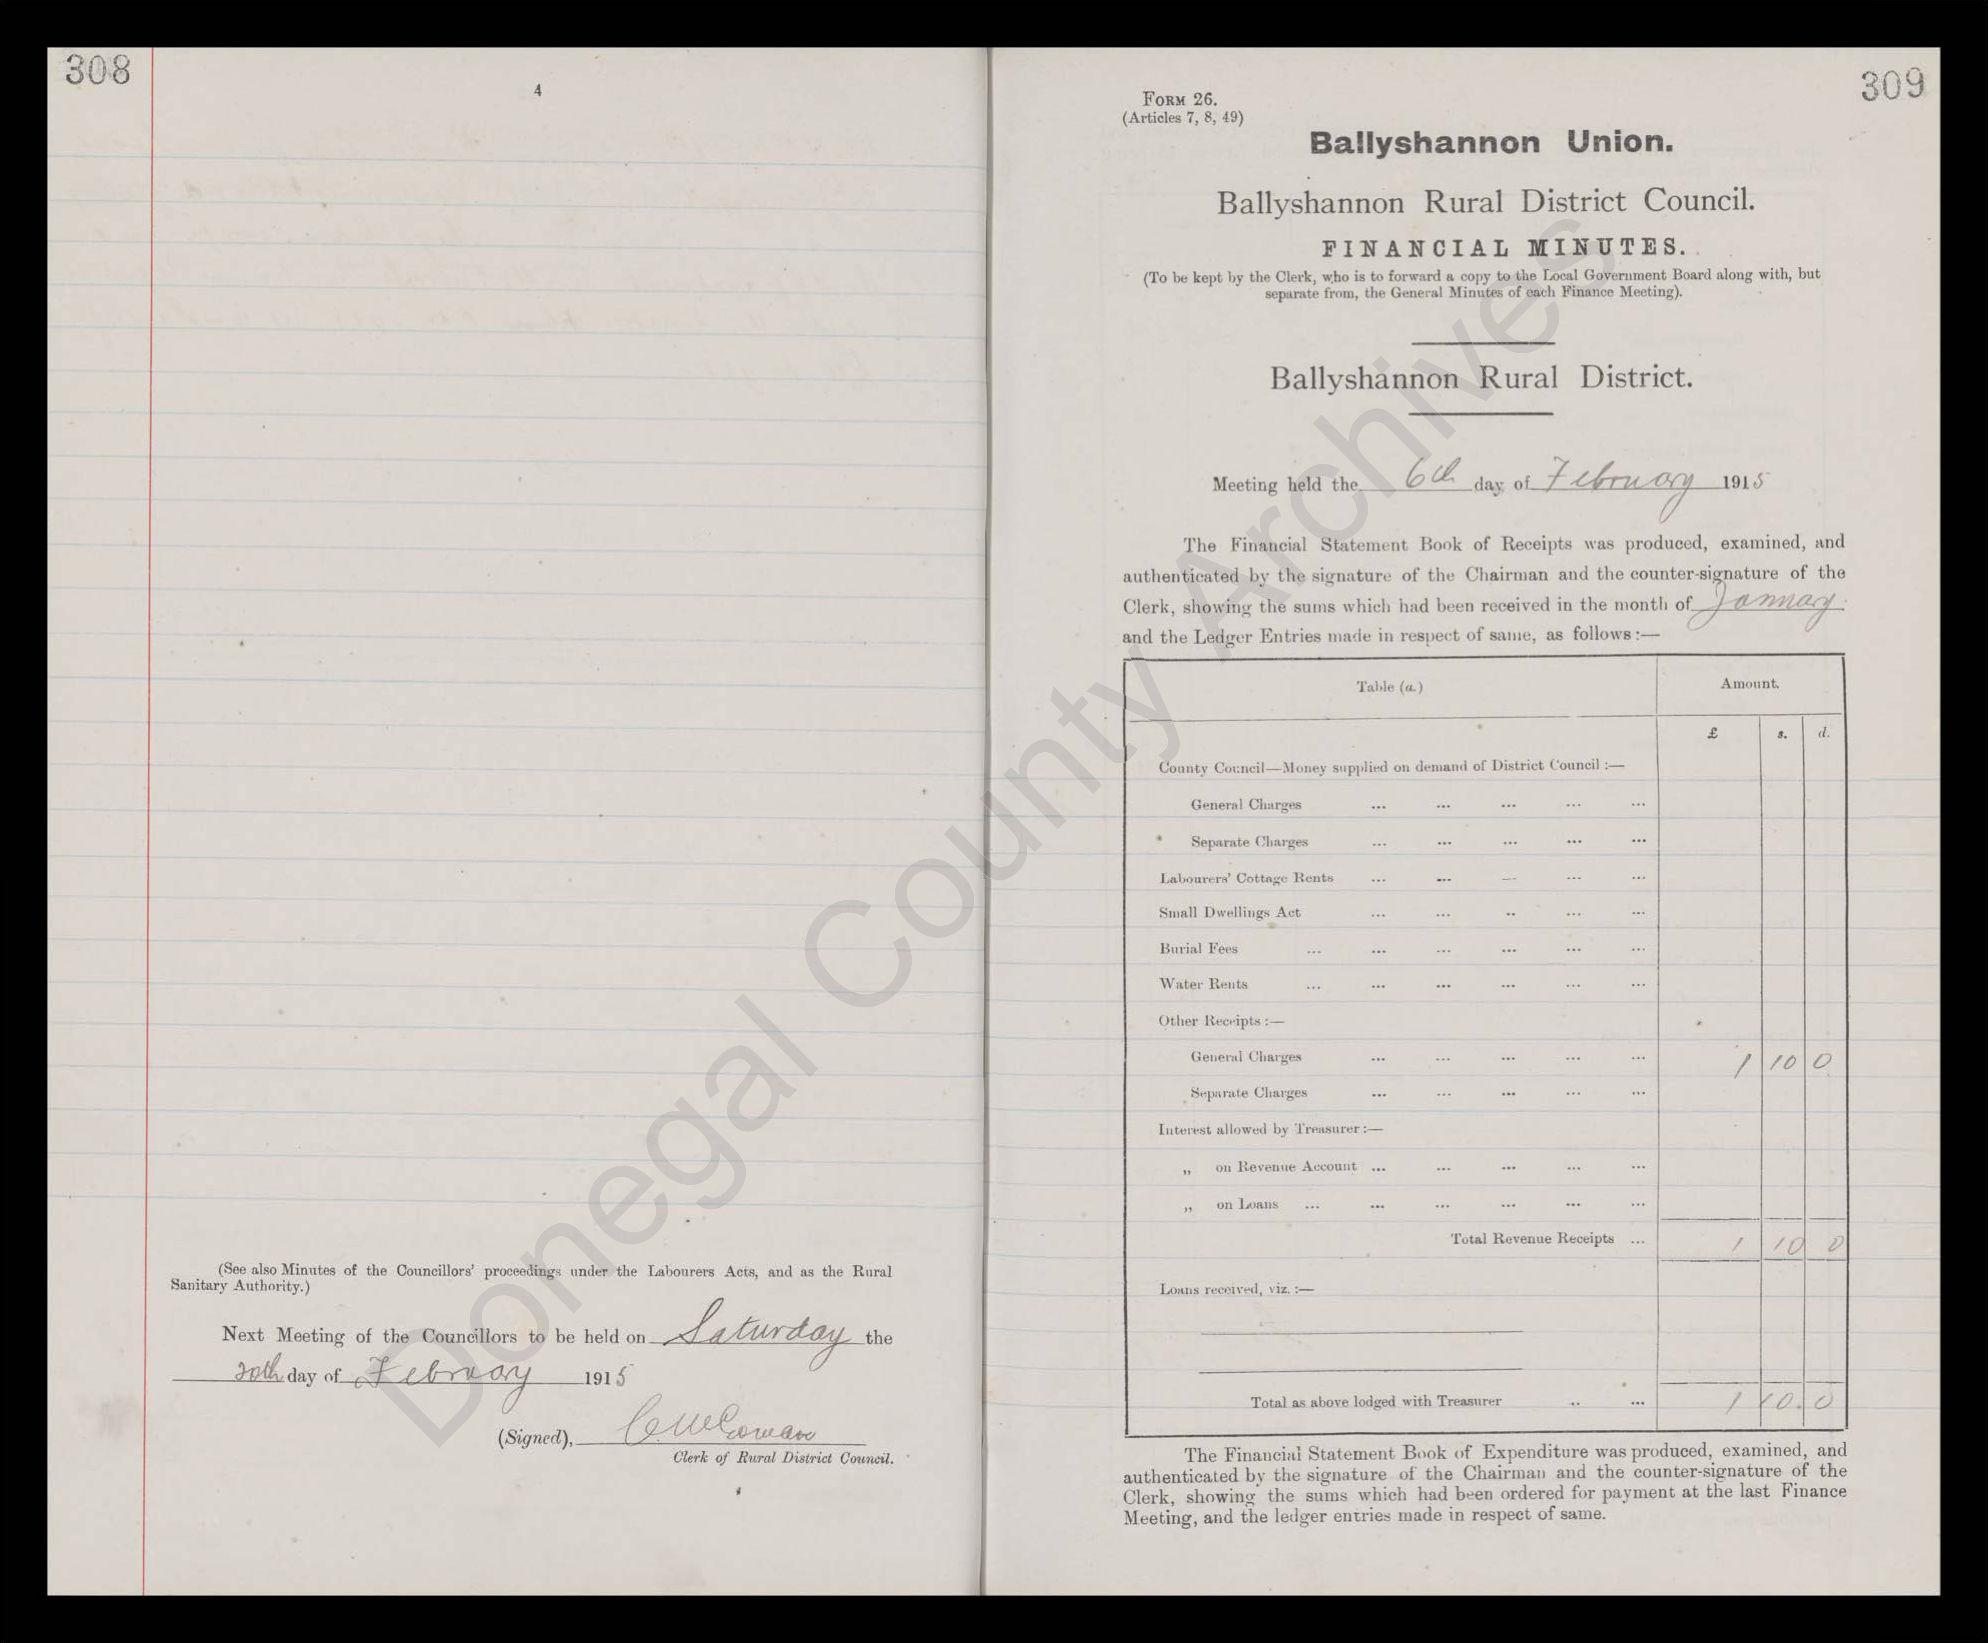 308
4
(See also Minutes of the Councillors' proceedings under the Labourers Acts, and as the Rural
Sanitary Authority.)
Next Meeting of the Councillors to be held on Saturday the
20th day of February 1915
(Signed),
Clerk of Rural District Council.
309
Form 26.
(Articles 7, 8, 49)
Ballyshannon Union.
Ballyshannon Rural District Council.
FINANCIAL MINUTES.
(To be kept by the Clerk, who is to forward a copy to the Local Government Board along with, but
separate from, the General Minutes of each Finance Meeting).
Ballyshannon Rural District.
Meeting held the 6th day of February 1915
The Financial Statement Book of Receipts was produced, examined, and
authenticated by the signature of the Chairman and the counter-signature of the
Clerk, showing the sums which had been received in the month of January
and the Ledger Entries made in respect of same, as follows :—
Table (a.) Amount.
£ s. d.
County Council—Money supplied on demand of District Council :—
General Charges ... ... ... ... ...
Separate Charges ... ... ... ... ...
Labourers' Cottage Rents ... ... ... ... ...
Small Dwellings Act ... ... .. ... ...
Burial Fees ... ... ... ... ... ...
Water Rents ... ... ... ... ... ...
Other Receipts :—
General Charges ... ... ... ... ... 1 10 0
Separate Charges ... ... ... ... ...
Interest allowed by Treasurer :—
„ on Revenue Account ... ... ... ... ...
„ on Loans ... ... ... ... ... ...
Total Revenue Receipts ... 1 10 0
Loans received, viz. :—
Total as above lodged with Treasurer .. ... 1 10 0
The Financial Statement Book of Expenditure was produced, examined, and
authenticated by the signature of the Chairman and the counter-signature of the
Clerk, showing the sums which had been ordered for payment at the last Finance
Meeting, and the ledger entries made in respect of same.
Donegal County Archives